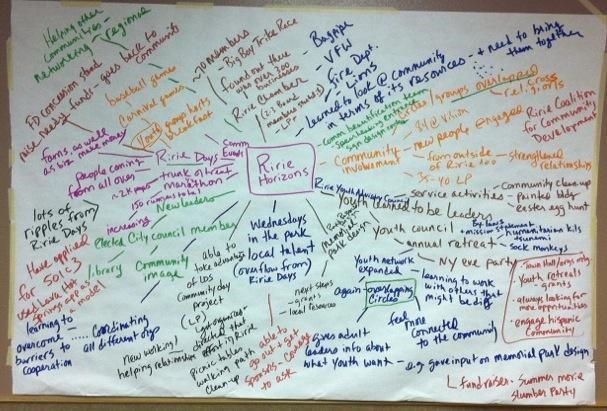 Helping other
Communities
networking
regional
FD concession stand
raise money
funds - goes back to
community
baseball games
Carnival games
Youth group hosts
breakfast
farms, as well
as biz. make money
Ririe Days
Comm.
Events
People coming
from all over
trunk or treat
marathon
~2K pops
150 rungers total
increasing
New leaders
lots of
ripples from
Ririe Days
Elected City council member
library
Community
image
Have applied
for 501C3
used Lava Hot
Springs app as
a model
learning to
overcome
barriers to
cooperation
coordinating
all different orgs
70 members
Big Boy Trike Race
found out there
was over 200
businesses
Ririe Chamber
members started
LP+
Ririe
Horizons
Bagpipe
VFW
Fire Dept.
Lions
learned to look @ community
in terms of its resources
+ need to bring
them together
Comm. beautification team
sign design
circles/groups overlapped
cross
religions
Community
involvement
84 @ Vision
new people engaged
from outside
of Ririe too
35-40 LP
strengthened
relationships
Ririe Coalition
for Community
Development
Ririe Youth Advisory Council
Youth learned to be leaders
service activities
Community clean-up
painted bldg.
easter egg hunt
Youth council
By-laws
+ mission statement
humanitarian kits
tsunami
sock monkeys
annual retreat
NY eve party
Wednesdays
in the park
local talent
(overflow from)
Ririe Days
memorial
Park design
able to
take advantage
of LDS
Community day
project
(LP)
next steps
- grants
- local resources
Youth network
expanded
learning to work
with others that
might be diff
again - overlapping
Circles
feel more
connected
to the community
Town Hall/orgs only
Youth retreats
- grants
always looking for
more opportunities
engage hispanic
Community
New working/
helping relationships
directed that
effort in Ririe
picnic tables
walking path
clean-up
able to
go out + get
sponsors - Courage
to ask
gives adult
leaders info about
what youth want
- e.g. gave input on memorial park design
L fundraiser - Summer movie
Slumber Party